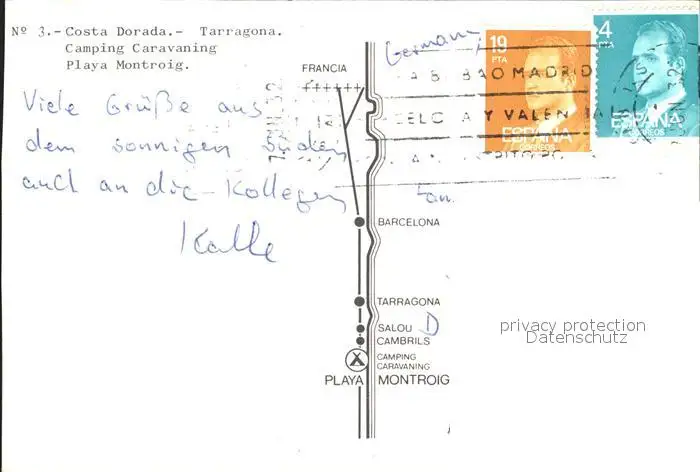 Nº 3.- Costa Dorada.- Tarragona.
Camping Caravaning
Playa Montroig.
Viele Grüße aus
dem sonnigen Süden
auch an die Kollegen
Kalle
Germany
Fam.
D
FRANCIA
BARCELONA
TARRAGONA
SALOU
CAMBRILS
CAMPING
CARAVANING
PLAYA MONTROIG
19
PTA
ESPAÑA
CORREOS
4
PTA
ESPAÑA
CORREOS
BAO MADRID
Y VALEN
privacy protection
Datenschutz